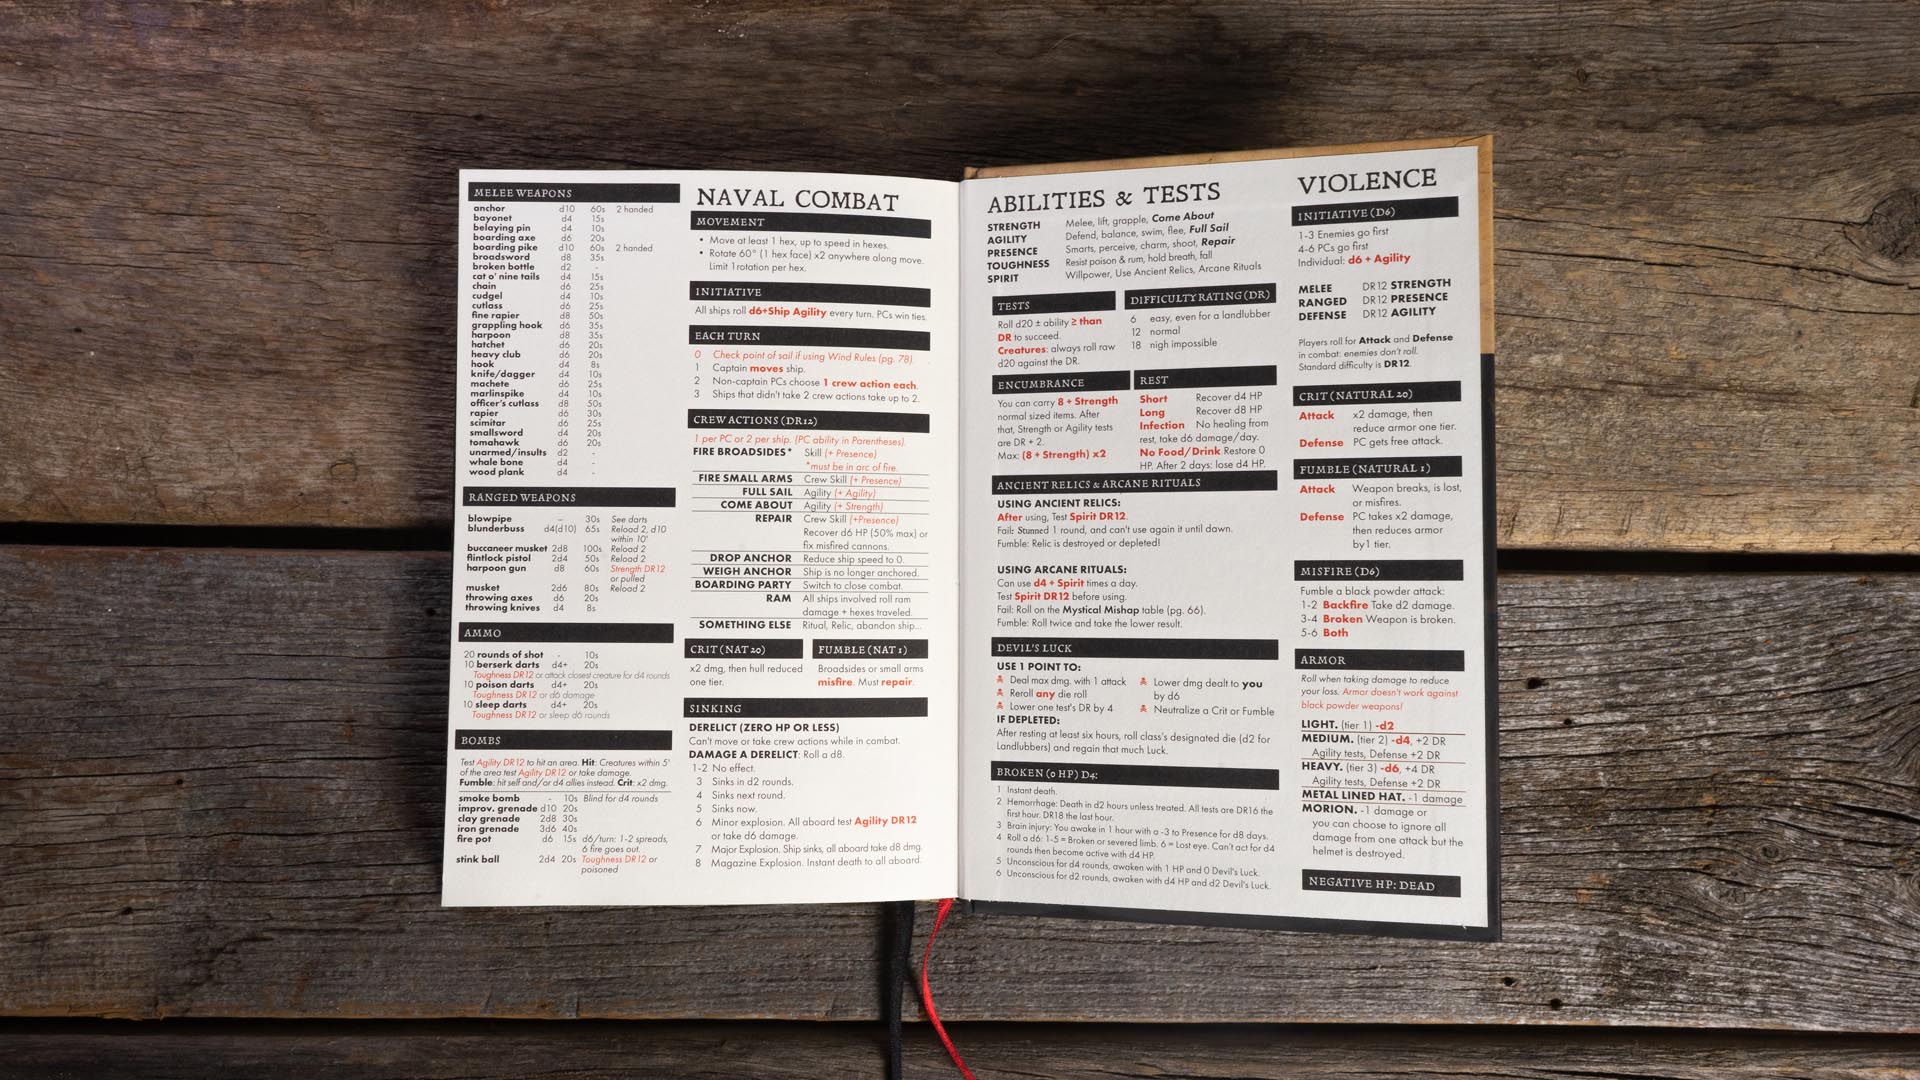 MELEE WEAPONS
anchor d10 60s 2 handed
bayonet d4 15s
belaying pin d4 10s
boarding axe d6 20s
boarding pike d10 60s 2 handed
broadsword d8 35s
broken bottle d2 -
cat o' nine tails d4 15s
chain d6 25s
cudgel d4 10s
cutlass d6 25s
fine rapier d8 50s
grappling hook d6 35s
harpoon d8 35s
hatchet d6 20s
heavy club d6 20s
hook d4 8s
knife/dagger d4 10s
machete d6 25s
marlinspike d4 10s
officer's cutlass d8 50s
rapier d6 30s
scimitar d6 25s
smallsword d4 20s
tomahawk d6 20s
unarmed/insults d2 -
whale bone d4 -
wood plank d4 -
RANGED WEAPONS
blowpipe – 30s See darts
blunderbuss d4(d10) 65s Reload 2, d10
within 10'
buccaneer musket 2d8 100s Reload 2
flintlock pistol 2d4 50s Reload 2
harpoon gun d8 60s Strength DR12
or pulled
musket 2d6 80s Reload 2
throwing axes d6 20s
throwing knives d4 8s
AMMO
20 rounds of shot - 10s
10 berserk darts d4+ 20s
Toughness DR12 or attack closest creature for d4 rounds
10 poison darts d4+ 20s
Toughness DR12 or d6 damage
10 sleep darts d4+ 20s
Toughness DR12 or sleep d6 rounds
BOMBS
Test Agility DR12 to hit an area. Hit: Creatures within 5'
of the area test Agility DR12 or take damage.
Fumble: hit self and/or d4 allies instead. Crit: x2 dmg.
smoke bomb - 10s Blind for d4 rounds
improv. grenade d10 20s
clay grenade 2d8 30s
iron grenade 3d6 40s
fire pot d6 15s d6/turn: 1-2 spreads,
6 fire goes out.
stink ball 2d4 20s Toughness DR12 or
poisoned
NAVAL COMBAT
MOVEMENT
• Move at least 1 hex, up to speed in hexes.
• Rotate 60° (1 hex face) x2 anywhere along move.
Limit 1 rotation per hex.
INITIATIVE
All ships roll d6+Ship Agility every turn. PCs win ties.
EACH TURN
0 Check point of sail if using Wind Rules (pg. 78).
1 Captain moves ship.
2 Non-captain PCs choose 1 crew action each.
3 Ships that didn't take 2 crew actions take up to 2.
CREW ACTIONS (DR12)
1 per PC or 2 per ship. (PC ability in Parentheses).
FIRE BROADSIDES* Skill (+ Presence)
*must be in arc of fire.
FIRE SMALL ARMS Crew Skill (+ Presence)
FULL SAIL Agility (+ Agility)
COME ABOUT Agility (+ Strength)
REPAIR Crew Skill (+Presence)
Recover d6 HP (50% max) or
fix misfired cannons.
DROP ANCHOR Reduce ship speed to 0.
WEIGH ANCHOR Ship is no longer anchored.
BOARDING PARTY Switch to close combat.
RAM All ships involved roll ram
damage + hexes traveled.
SOMETHING ELSE Ritual, Relic, abandon ship...
CRIT (NAT 20)
x2 dmg, then hull reduced
one tier.
FUMBLE (NAT 1)
Broadsides or small arms
misfire. Must repair.
SINKING
DERELICT (ZERO HP OR LESS)
Can't move or take crew actions while in combat.
DAMAGE A DERELICT: Roll a d8.
1-2 No effect.
3 Sinks in d2 rounds.
4 Sinks next round.
5 Sinks now.
6 Minor explosion. All aboard test Agility DR12
or take d6 damage.
7 Major Explosion. Ship sinks, all aboard take d8 dmg.
8 Magazine Explosion. Instant death to all aboard.
ABILITIES & TESTS
STRENGTH Melee, lift, grapple, Come About
AGILITY Defend, balance, swim, flee, Full Sail
PRESENCE Smarts, perceive, charm, shoot, Repair
TOUGHNESS Resist poison & rum, hold breath, fall
SPIRIT Willpower, Use Ancient Relics, Arcane Rituals
TESTS
Roll d20 ± ability ≥ than
DR to succeed.
Creatures: always roll raw
d20 against the DR.
DIFFICULTY RATING (DR)
6 easy, even for a landlubber
12 normal
18 nigh impossible
ENCUMBRANCE
You can carry 8 + Strength
normal sized items. After
that, Strength or Agility tests
are DR + 2.
Max: (8 + Strength) x2
REST
Short Recover d4 HP
Long Recover d8 HP
Infection No healing from
rest, take d6 damage/day.
No Food/Drink Restore 0
HP. After 2 days: lose d4 HP.
ANCIENT RELICS & ARCANE RITUALS
USING ANCIENT RELICS:
After using, Test Spirit DR12.
Fail: Stunned 1 round, and can't use again it until dawn.
Fumble: Relic is destroyed or depleted!
USING ARCANE RITUALS:
Can use d4 + Spirit times a day.
Test Spirit DR12 before using.
Fail: Roll on the Mystical Mishap table (pg. 66).
Fumble: Roll twice and take the lower result.
DEVIL'S LUCK
USE 1 POINT TO:
Deal max dmg. with 1 attack
Reroll any die roll
Lower one test's DR by 4
Lower dmg dealt to you
by d6
Neutralize a Crit or Fumble
IF DEPLETED:
After resting at least six hours, roll class's designated die (d2 for
Landlubbers) and regain that much Luck.
BROKEN (0 HP) D4:
1 Instant death.
2 Hemorrhage: Death in d2 hours unless treated. All tests are DR16 the
first hour. DR18 the last hour.
3 Brain injury: You awake in 1 hour with a -3 to Presence for d8 days.
4 Roll a d6: 1-5 = Broken or severed limb. 6 = Lost eye. Can't act for d4
rounds then become active with d4 HP.
5 Unconscious for d4 rounds, awaken with 1 HP and 0 Devil's Luck.
6 Unconscious for d2 rounds, awaken with d4 HP and d2 Devil's Luck.
VIOLENCE
INITIATIVE (D6)
1-3 Enemies go first
4-6 PCs go first
Individual: d6 + Agility
MELEE DR12 STRENGTH
RANGED DR12 PRESENCE
DEFENSE DR12 AGILITY
Players roll for Attack and Defense
in combat: enemies don't roll.
Standard difficulty is DR12.
CRIT (NATURAL 20)
Attack x2 damage, then
reduce armor one tier.
Defense PC gets free attack.
FUMBLE (NATURAL 1)
Attack Weapon breaks, is lost,
or misfires.
Defense PC takes x2 damage,
then reduces armor
by 1 tier.
MISFIRE (D6)
Fumble a black powder attack:
1-2 Backfire Take d2 damage.
3-4 Broken Weapon is broken.
5-6 Both
ARMOR
Roll when taking damage to reduce
your loss. Armor doesn't work against
black powder weapons!
LIGHT. (tier 1) -d2
MEDIUM. (tier 2) -d4, +2 DR
Agility tests, Defense +2 DR
HEAVY. (tier 3) -d6, +4 DR
Agility tests, Defense +2 DR
METAL LINED HAT. -1 damage
MORION. -1 damage or
you can choose to ignore all
damage from one attack but the
helmet is destroyed.
NEGATIVE HP: DEAD